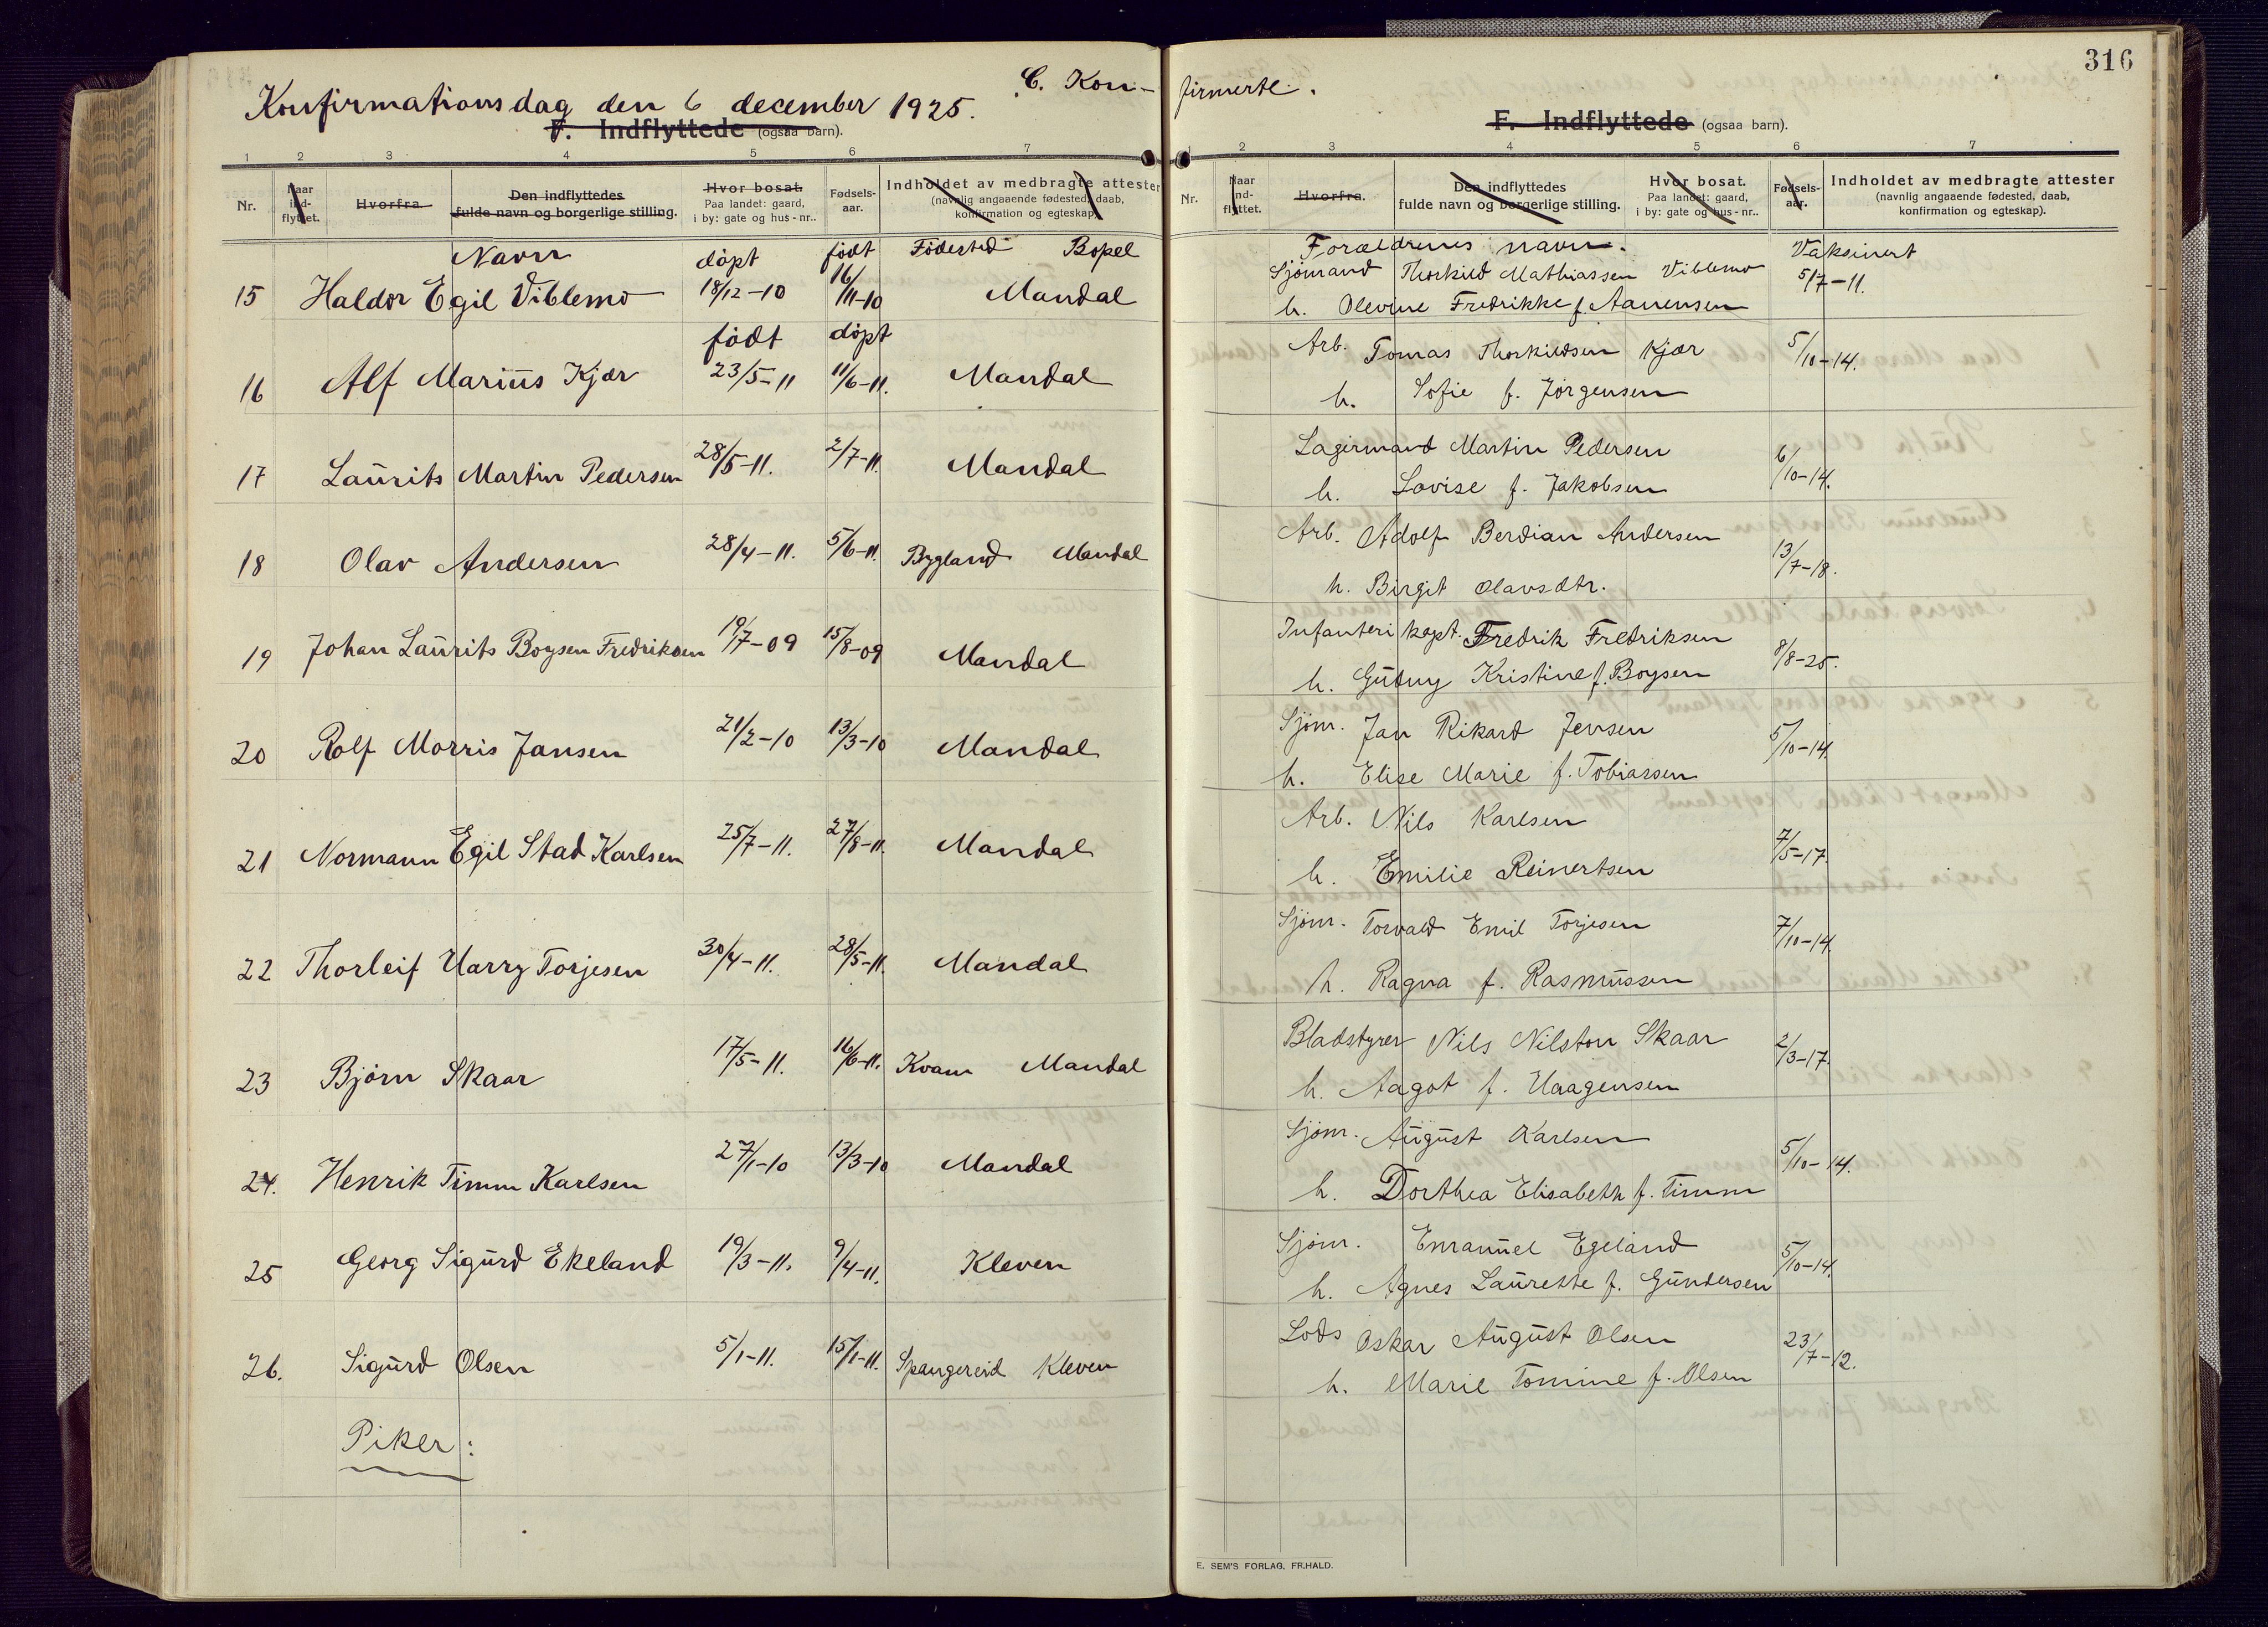 316
Konfirmationsdag den 6 december 1925.
C. Kon-firmerte.
F. Indflyttede (ogsaa barn).
1 2 3 4 5 6 7
Nr. Naar ind-flyttet. Hvorfra. Den indflyttedes fulde navn og borgerlige stilling. Hvor bosat. Paa landet: gaard, i by: gate og hus-nr.. Fødsels-aar. Indholdet av medbragte attester (navnlig angaaende fødested, daab, konfirmation og egteskap).
Navn døpt født Fødested Bopel
15 Haldor Egil Viblemo 18/12-10 16/11-10 Mandal
født døpt
16 Alf Marius Kjær 23/5-11 11/6-11. Mandal
17 Laurits Martin Pedersen 28/5-11. 2/7-11. Mandal
18 Olav Andersen 28/4-11. 5/6-11. Bygland Mandal
19 Johan Laurits Boysen Fredriksen 19/7-09 15/8-09 Mandal
20 Rolf Morris Jansen 21/2-10 13/3-10 Mandal
21 Normann Egil Stad Karlsen 25/7-11. 27/8-11. Mandal
22 Thorleif Harry Torjesen 30/4-11. 28/5-11. Mandal
23 Bjørn Skaar 17/5-11. 16/6-11. Kvam Mandal
24. Henrik Timm Karlsen 27/1-10 13/3-10 Mandal
25 Georg Sigurd Ekeland 19/3-11. 9/4-11. Kleven
26. Sigurd Olsen 5/1-11. 15/1-11. Spangereid Kleven
Piker:
F. Indflyttede (ogsaa barn).
1 2 3 4 5 6 7
Nr. Naar ind-flyttet. Hvorfra. Den indflyttedes fulde navn og borgerlige stilling. Hvor bosat. Paa landet: gaard, i by: gate og hus-nr.. Fødsels-aar. Indholdet av medbragte attester (navnlig angaaende fødested, daab, konfirmation og egteskap).
Forældrenes navn. Vaksinert
Sjømand Thorkild Mathiassen Viblemo 5/7-11.
h. Olevine Fredrikke f. Aanensen
Arb. Tomas Thorkildsen Kjær 5/10-14.
h. Sofie f. Jørgensen
Lagermand Martin Pedersen 6/10-14.
h. Lovise f. Jakobsen
Arb. Adolf Berdian Andersen 13/7-18.
h. Birgit Olavsdtr.
Infanteri kapt. Fredrik Fredriksen 8/8-25.
h. Gudny Kristine f. Boysen
Sjøm. Jan Rikard Jensen 5/10-14.
h. Elise Marie f. Tobiassen
Arb. Nils Karlsen 7/5-17.
h. Emilie Reinertsen
Sjøm. Torvald Emil Torjesen 7/10-14.
h. Ragna f. Rasmussen
Bladstyrer Nils Nilston Skaar 2/3-17.
h. Aagot f. Haagensen
Sjøm. August Karlsen 5/10-14.
h. Dorthea Elisabeth f. Timm
Sjøm. Emanuel Egeland 5/10-14.
h. Agnes Laurette f. Gundersen
Lods Oskar August Olsen 23/7-12.
h. Marie Tomine f. Olsen
E. SEM'S FORLAG, FR.HALD.